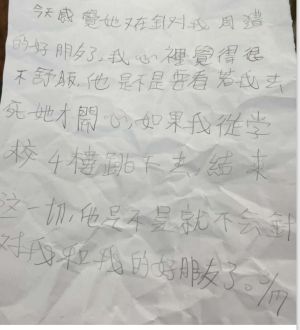 今天感覺她又在針對我周遭
的好朋友了,我心裡覺得很
不舒服,他是不是要看着我去
死她才開心,如果我從学
校4樓跳下去,結束
这一切,他是不是就不会針
对我和我的好朋友了。